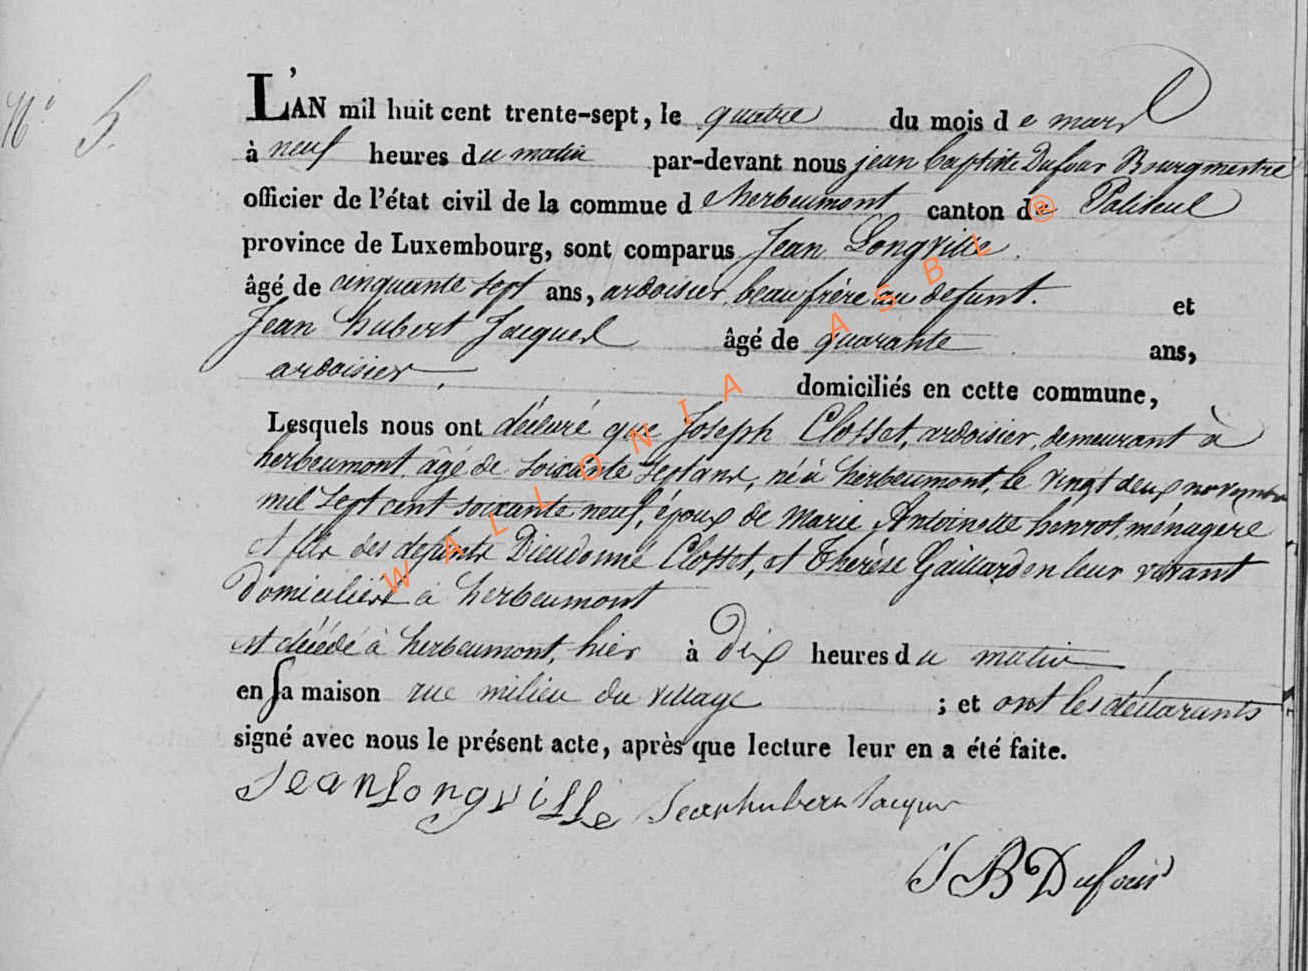 N° 5.
L'AN mil huit cent trente-sept, le quatre du mois de mars
à neuf heures du matin par-devant nous jean baptiste Dufour Bourgmestre
officier de l'état civil de la commue d'herbeumont canton de Paliseul
province de Luxembourg, sont comparus Jean Longville.
âgé de cinquante sept ans, ardoisier, beaufrère au défunt. et
Jean hubert Jacques âgé de quarante ans,
ardoisier, domiciliés en cette commune,
Lesquels nous ont déclaré que Joseph Closset, ardoisier, demeurant à
herbeumont, âgé de soixante sept ans, né à herbeumont, le vingt deux novembre
mil sept cent soixante neuf, époux de Marie Antoinette henrot, ménagère
et fils des défunts Dieudonné Closset, et Thérèse Gaillard en leur vivant
Domiciliés à herbeumont
est décédé à herbeumont, hier à Dix heures du matin
en sa maison rue milieu du village ; et ont les déclarants
signé avec nous le présent acte, après que lecture leur en a été faite.
Jean Longville Jean hubert Jacques
JB Dufour
WALLONIA ASBL @